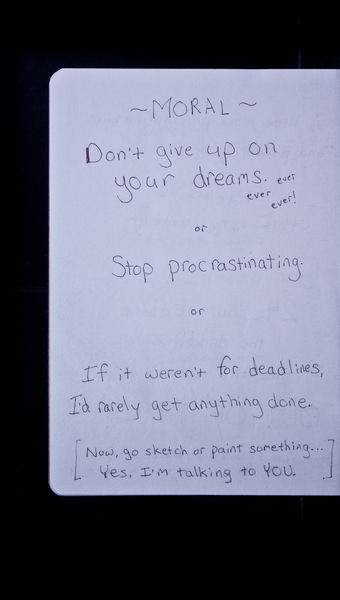 ~MORAL~
Don't give up on
your dreams. ever
ever
ever!
or
Stop procrastinating.
or
If it weren't for deadlines,
I'd rarely get anything done.
[Now, go sketch or paint something...
Yes, I'm talking to YOU.]